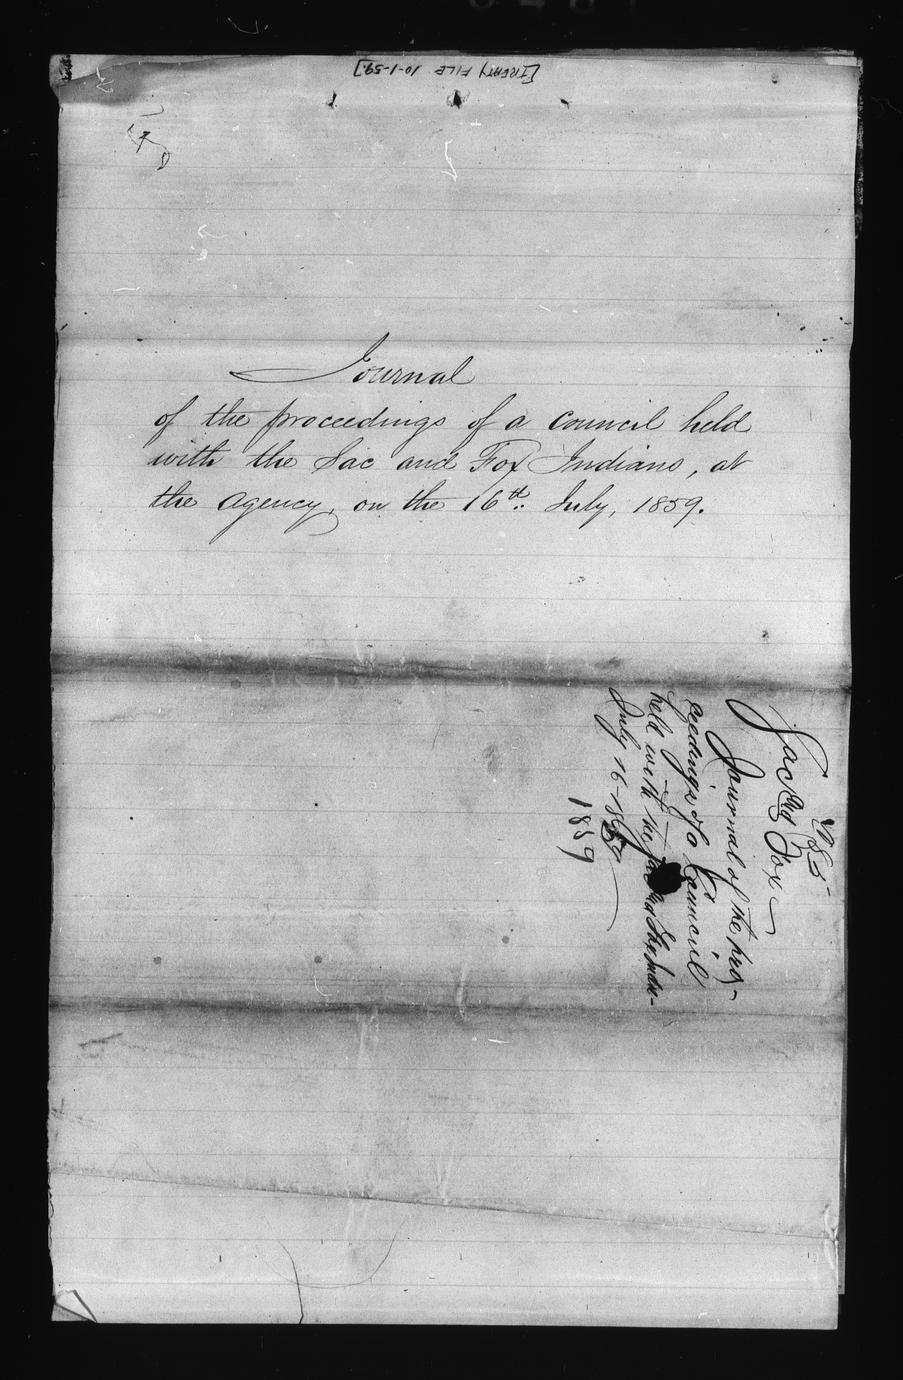 [TREATY FILE 10-1-59.]
Journal
of the proceedings of a council held
with the Sac and Fox Indians, at
the agency, on the 16th. July, 1859.
Sac & Fox
Journal of the pro-
ceedings of a Council
held with the Sac
July 16-1859
1859